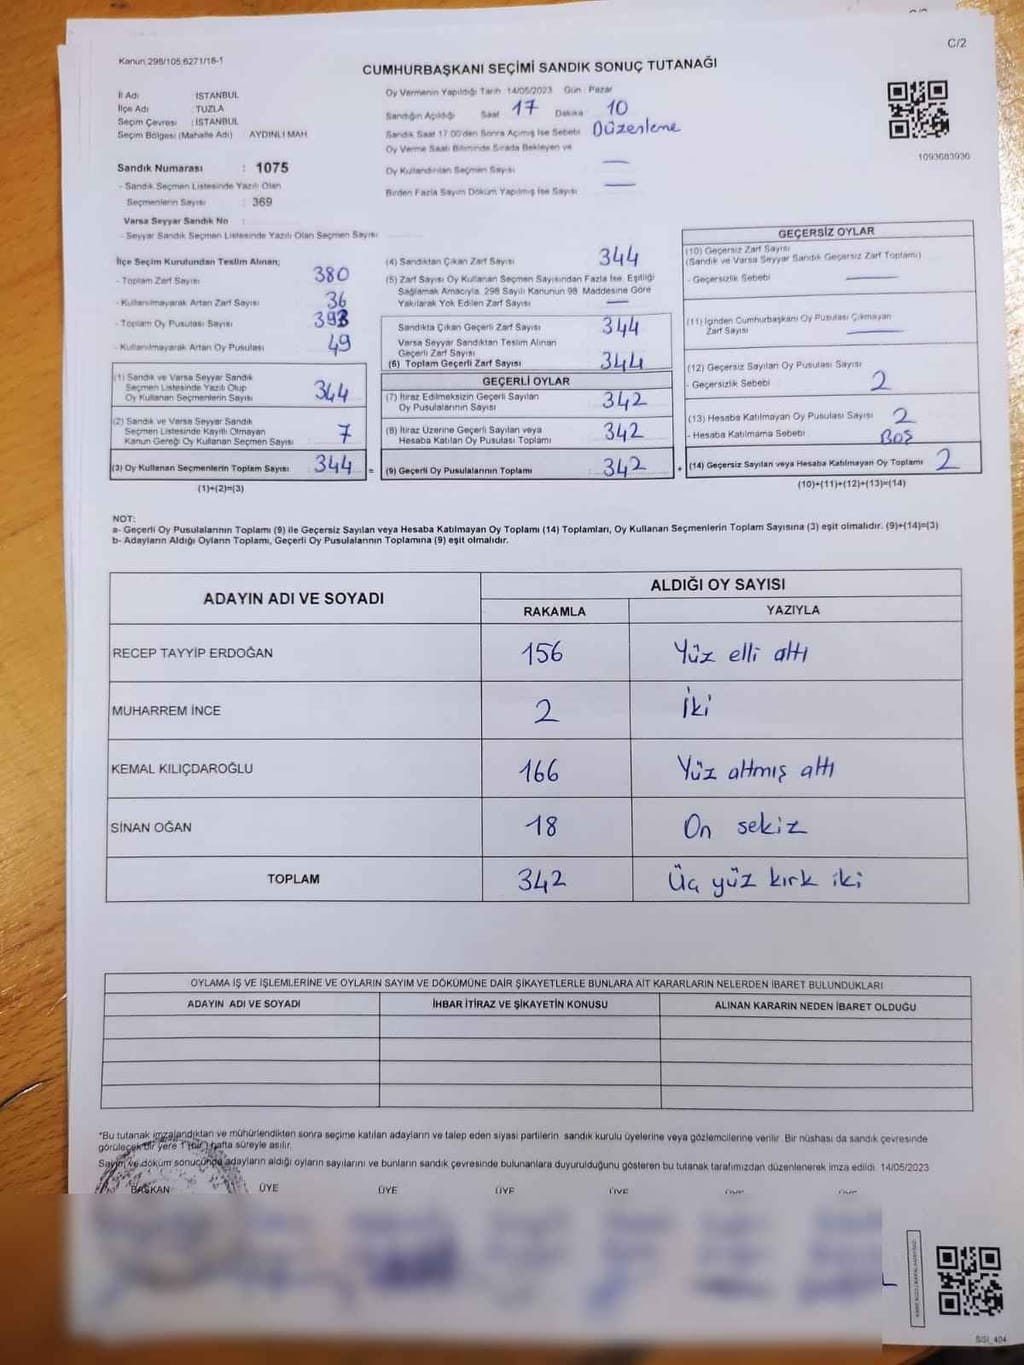 C/2
Kanun.298/105.6271/18-1
CUMHURBAŞKANI SEÇİMİ SANDIK SONUÇ TUTANAĞI
İl Adı : İSTANBUL
İlçe Adı : TUZLA
Seçim Çevresi : İSTANBUL
Seçim Bölgesi (Mahalle Adı) AYDINLI MAH
Sandık Numarası : 1075
- Sandık Seçmen Listesinde Yazılı Olan
Seçmenlerin Sayısı : 369
Varsa Seyyar Sandık No :
- Seyyar Sandık Seçmen Listesinde Yazılı Olan Seçmen Sayısı
Oy Vermenin Yapıldığı Tarih 14/05/2023 Gün : Pazar
Sandığın Açıldığı Saat 17 Dakika 10
Sandık Saat 17.00'den Sonra Açılmış İse Sebebi Düzenleme
Oy Verme Saati Bitiminde Sırada Bekleyen ve
Oy Kullandırılan Seçmen Sayısı —
Birden Fazla Sayım Döküm Yapılmış İse Sayısı —
1093683930
İlçe Seçim Kurulundan Teslim Alınan;
- Toplam Zarf Sayısı 380
- Kullanılmayarak Artan Zarf Sayısı 36
- Toplam Oy Pusulası Sayısı 393
- Kullanılmayarak Artan Oy Pusulası 49
(1) Sandık ve Varsa Seyyar Sandık
Seçmen Listesinde Yazılı Olup
Oy Kullanan Seçmenlerin Sayısı 344
(2) Sandık ve Varsa Seyyar Sandık
Seçmen Listesinde Kayıtlı Olmayan
Kanun Gereği Oy Kullanan Seçmen Sayısı 7
(3) Oy Kullanan Seçmenlerin Toplam Sayısı 344 =
(1)+(2)=(3)
(4) Sandıktan Çıkan Zarf Sayısı 344
(5) Zarf Sayısı Oy Kullanan Seçmen Sayısından Fazla İse, Eşitliği
Sağlamak Amacıyla, 298 Sayılı Kanunun 98. Maddesine Göre
Yakılarak Yok Edilen Zarf Sayısı —
Sandıkta Çıkan Geçerli Zarf Sayısı 344
Varsa Seyyar Sandıktan Teslim Alınan
Geçerli Zarf Sayısı
(6) Toplam Geçerli Zarf Sayısı 344
GEÇERLİ OYLAR
(7) İtiraz Edilmeksizin Geçerli Sayılan
Oy Pusulalarının Sayısı 342
(8) İtiraz Üzerine Geçerli Sayılan veya
Hesaba Katılan Oy Pusulası Toplamı 342
(9) Geçerli Oy Pusulalarının Toplamı 342 +
GEÇERSİZ OYLAR
(10) Geçersiz Zarf Sayısı
(Sandık ve Varsa Seyyar Sandık Geçersiz Zarf Toplamı)
- Geçersizlik Sebebi —
(11) İçinden Cumhurbaşkanı Oy Pusulası Çıkmayan
Zarf Sayısı —
(12) Geçersiz Sayılan Oy Pusulası Sayısı
- Geçersizlik Sebebi 2
(13) Hesaba Katılmayan Oy Pusulası Sayısı 2
- Hesaba Katılmama Sebebi BOŞ
(14) Geçersiz Sayılan veya Hesaba Katılmayan Oy Toplamı 2
(10)+(11)+(12)+(13)=(14)
NOT:
a- Geçerli Oy Pusulalarının Toplamı (9) ile Geçersiz Sayılan veya Hesaba Katılmayan Oy Toplamı (14) Toplamları, Oy Kullanan Seçmenlerin Toplam Sayısına (3) eşit olmalıdır. (9)+(14)=(3)
b- Adayların Aldığı Oyların Toplamı, Geçerli Oy Pusulalarının Toplamına (9) eşit olmalıdır.
ADAYIN ADI VE SOYADI
ALDIĞI OY SAYISI
RAKAMLA YAZIYLA
RECEP TAYYİP ERDOĞAN 156 Yüz elli altı
MUHARREM İNCE 2 İki
KEMAL KILIÇDAROĞLU 166 Yüz altmış altı
SİNAN OĞAN 18 On sekiz
TOPLAM 342 Üç yüz kırk iki
OYLAMA İŞ VE İŞLEMLERİNE VE OYLARIN SAYIM VE DÖKÜMÜNE DAİR ŞİKAYETLERLE BUNLARA AİT KARARLARIN NELERDEN İBARET BULUNDUKLARI
ADAYIN ADI VE SOYADI İHBAR İTİRAZ VE ŞİKAYETİN KONUSU ALINAN KARARIN NEDEN İBARET OLDUĞU
*Bu tutanak imzalandıktan ve mühürlendikten sonra seçime katılan adayların ve talep eden siyasi partilerin sandık kurulu üyelerine veya gözlemcilerine verilir. Bir nüshası da sandık çevresinde
görülecek bir yere 1 (bir) hafta süreyle asılır.
Sayım ve döküm sonucunda adayların aldığı oyların sayılarını ve bunların sandık çevresinde bulunanlara duyurulduğunu gösteren bu tutanak tarafımızdan düzenlenerek imza edildi. 14/05/2023
BAŞKAN ÜYE ÜYE ÜYE ÜYE ÜYE ÜYE
SISI_404